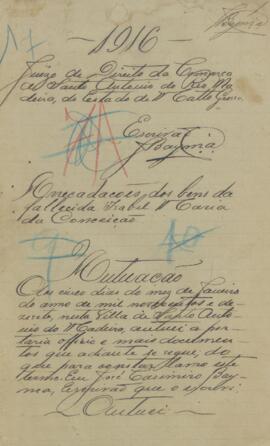 Bayma
17
—1916—
Juizo de Direito da Comarca
de Santo Antonio do Rio Ma
deira, do Estado de Matto Grosso
Escrivão
JBayma
Arrecadacões dos bens da
fallecida Izabel Maria
da Conceição
Autuação
Aos cinco dias do mez de Janeiro
do anno de mil novecentos e de
zeseis, nesta Villa de Santo Anto
nio do Madeira, autuei a por
taria officio e mais documen
tos que adiante se segue, do
que para constar lavro este
termo. Eu José Casimiro Bay
ma, Escrivão que o escrevi
Autuei